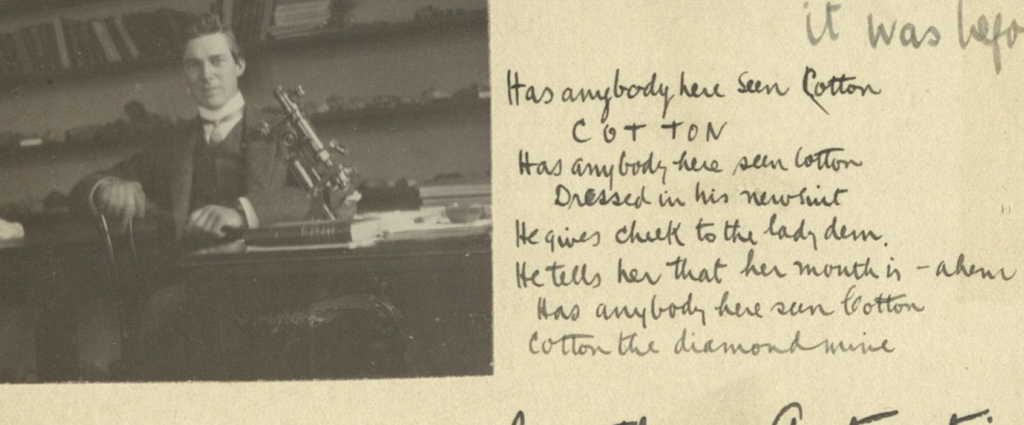 it was
Has anybody here seen Cotton
COTTON
Has anybody here seen Cotton
Dressed in his new suit
He gives cheek to the lady dem.
He tells her that her mouth is - ahem
Has anybody here seen Cotton
Cotton the diamond mine